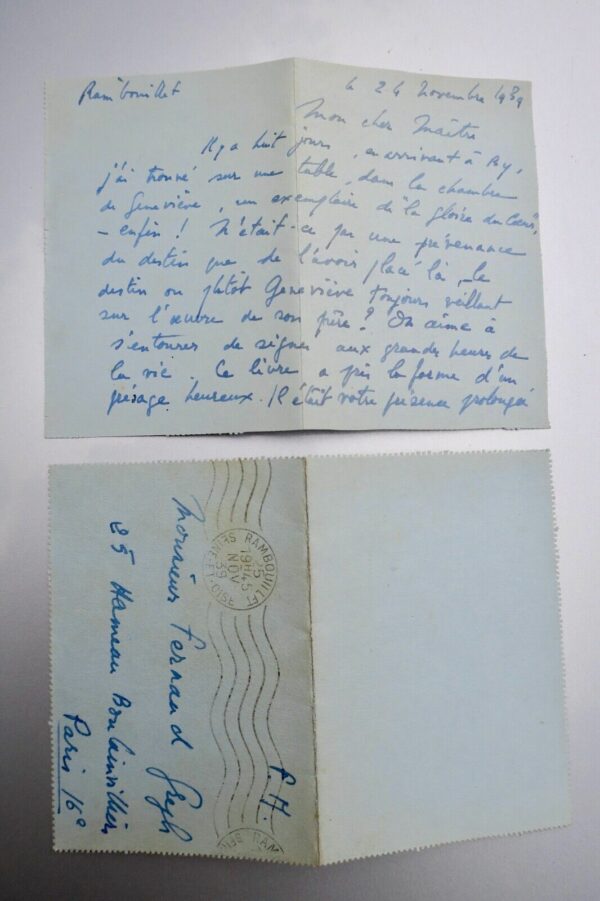 Rambouillet
le 24 novembre 1939
Mon cher Maître
Il y a huit jours, en arrivant à Ry,
j'ai trouvé sur une table, dans la chambre
de Geneviève, un exemplaire de "la gloire du Cœur"
- enfin ! N'était-ce pas une prévenance
du destin que de l'avoir placé là, le
destin ou plutôt Geneviève toujours veillant
sur l'œuvre de son père ? On aime à
s'entourer de signes aux grandes heures de
la vie. Ce livre a pris la forme d'un
présage heureux. C'était votre présence prolongée
F. M.
Monsieur Fernand Gregh
25 Hameau Boulainvilliers
Paris 16e
RAMBOUILLET
25
19H45
NOV
39
SEINE-ET-OISE
RAM